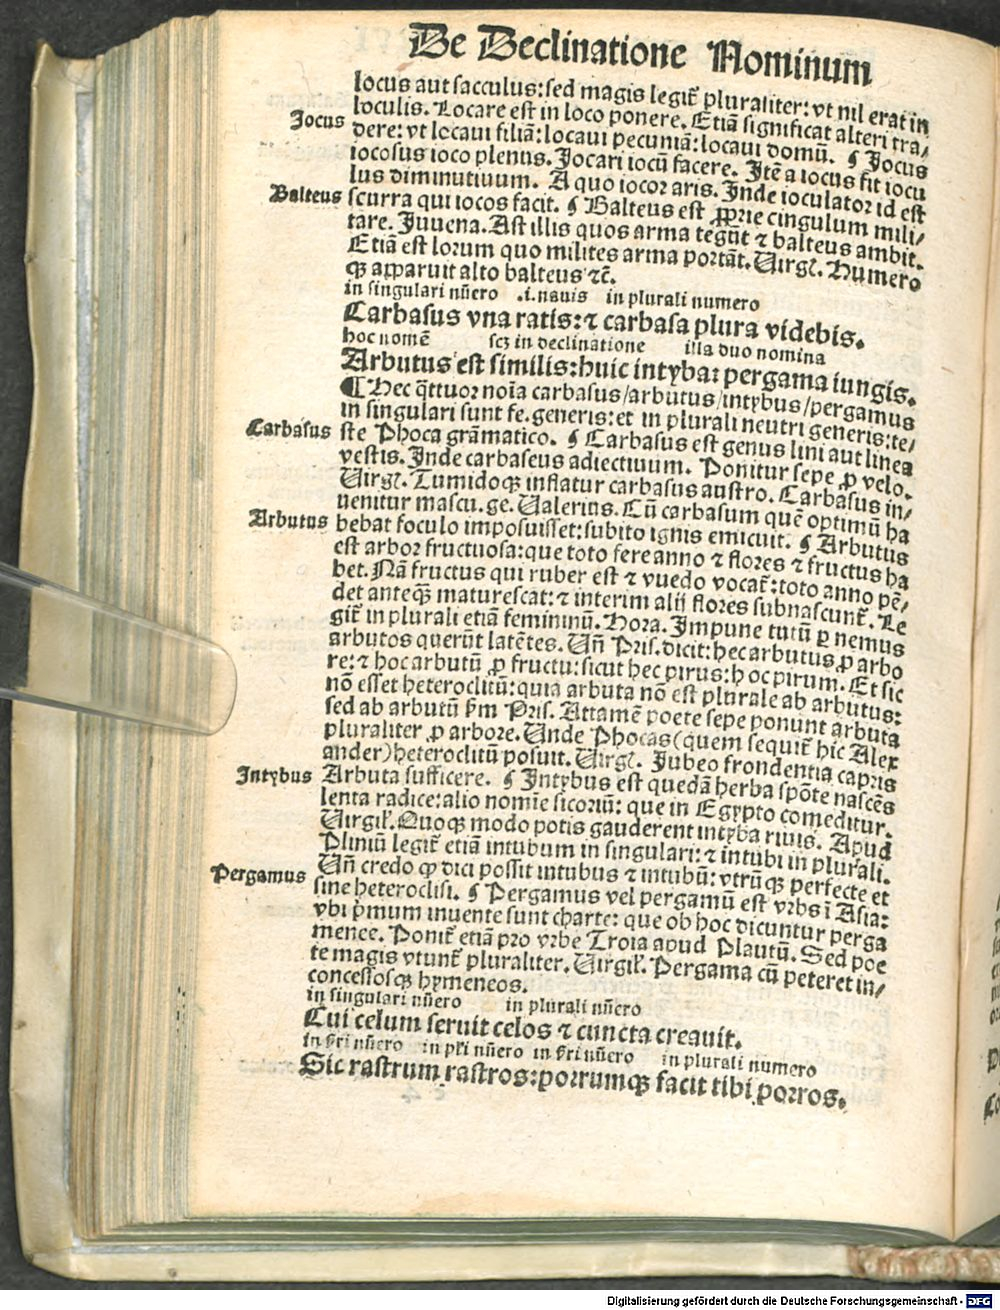 De Declinatione Nominum
locus aut sacculus: sed magis legit̃ pluraliter: vt nil erat in
loculis. Locare est in loco ponere. Etiã significat alteri tra/
Jocus dere: vt locaui filiã: locaui pecuniã: locaui domũ. ¶ Jocus
iocosus ioco plenus. Jocari iocũ facere. Itẽ a iocus fit iocu
lus diminutiuum. A quo iocor aris. Inde ioculator id est
Balteus scurra qui iocos facit. ¶ Balteus est ꝓprie cingulum mili/
tare. Juuena. Ast illis quos arma tegũt ⁊ balteus ambit.
Etiã est lorum quo milites arma portãt. Virgł. Humero
qꝫ apparuit alto balteus ⁊c̃.
in singulari nũero .i. nauis in plurali numero
Carbasus vna ratis: ⁊ carbasa plura videbis.
hoc nomẽ scꝫ in declinatione illa duo nomina
Arbutus est similis: huic intyba: pergama iungis.
¶ Hec q̃ttuor noĩa carbasus/arbutus/intybus/pergamus
in singulari sunt fe. generis: et in plurali neutri generis: te/
Carbasus ste Phoca grãmatico. ¶ Carbasus est genus lini aut linea
vestis. Inde carbaseus adiectiuum. Ponitur sepe ꝓ velo.
Virgł. Tumidoqꝫ inflatur carbasus austro. Carbasus in/
uenitur mascu. ge. Valerius. Cũ carbasum quẽ optimũ ha
Arbutus bebat foculo imposuisset: subito ignis emicuit. ¶ Arbutus
est arbor fructuosa: que toto fere anno ⁊ flores ⁊ fructus ha
bet. Nã fructus qui ruber est ⁊ vuedo vocat̃: toto anno pẽ/
det anteqꝫ maturescat: ⁊ interim alij flores subnascunt̃. Le
git̃ in plurali etiã femininũ. Hora. Impune tutũ ꝑ nemus
arbutos querũt latẽtes. Vñ Pris. dicit: hec arbutus ꝓ arbo
re: ⁊ hoc arbutũ ꝓ fructu: sicut hec pirus: hoc pirum. Et sic
nõ esset heteroclitũ: quia arbuta nõ est plurale ab arbutus:
sed ab arbutũ ẜm Pris. Attamẽ poete sepe ponunt arbuta
pluraliter ꝓ arbore. Unde Phocas (quem sequit̃ hic Alex
ander) heteroclitũ posuit. Virgł. Jubeo frondentia capris
Intybus Arbuta sufficere. ¶ Intybus est quedã herba spõte nascẽs
lenta radice: alio nomĩe sicoriũ: que in Egypto comeditur.
Virgił. Quoqꝫ modo potis gauderent intyba riuis. Apud
Pliniũ legit̃ etiã intubum in singulari: ⁊ intubi in plurali.
Vñ credo ꝙ dici possit intubus ⁊ intubũ: vtrũqꝫ perfecte et
Pergamus sine heteroclisi. ¶ Pergamus vel pergamũ est vrbs ĩ Asia:
vbi p̃mum inuente sunt charte: que ob hoc dicuntur perga
mence. Ponit̃ etiã pro vrbe Troia apud Plautũ. Sed poe
te magis vtunt̃ pluraliter. Virgił. Pergama cũ peteret in/
concessosqꝫ hymeneos.
in singulari nũero in plurali nũero
Cui celum seruit celos ⁊ cuncta creauit.
in ẜri nũero in płi nũero in ẜri nũero in plurali numero
Sic rastrum rastros: porrumqꝫ facit tibi porros.
Digitalisierung gefördert durch die Deutsche Forschungsgemeinschaft - DFG